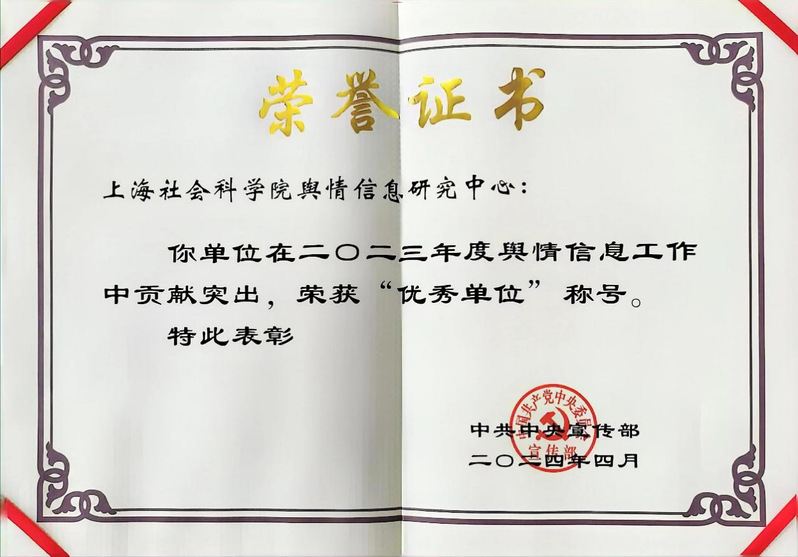 荣誉证书
上海社会科学院舆情信息研究中心：
你单位在二〇二三年度舆情信息工作
中贡献突出，荣获“优秀单位”称号。
特此表彰
中国共产党中央委员会
宣传部
中共中央宣传部
二〇二四年四月